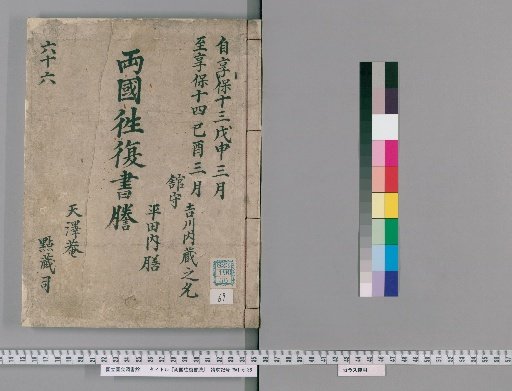 自享保十三戊申三月
至享保十四己酉三月
館守
吉川内蔵之允
平田内膳
両國往復書謄
天澤菴
點蔵司
六十六